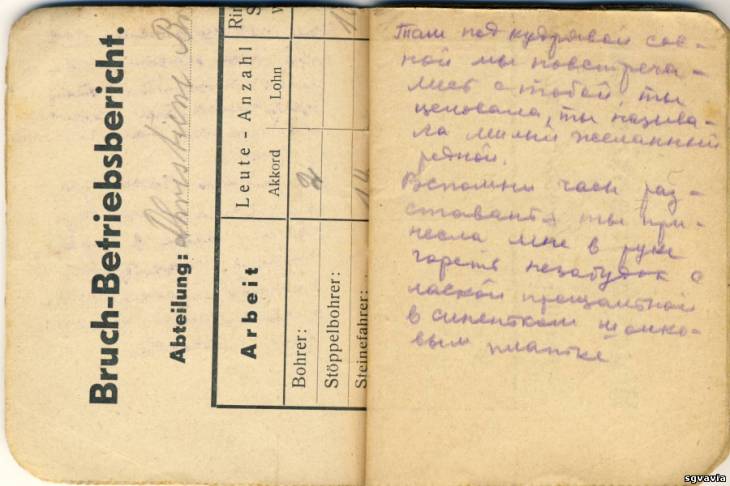 Bruch-Betriebsbericht.
Abteilung: Christiani Br
Arbeit
Leute-Anzahl
Akkord
Lohn
Bohrer: 2
Stöppelbohrer:
Steinefahrer: 14
Там под кудрявой сос-
ной мы повстреча-
лись с тобой, ты
целовала, ты называ-
ла милый желанный
родной.
Вспомни часы раз-
ставанья ты при-
несла мне в руке
горсть незабудок с
лаской прощальной
в синеньком шолко-
вым платке
sgvavia